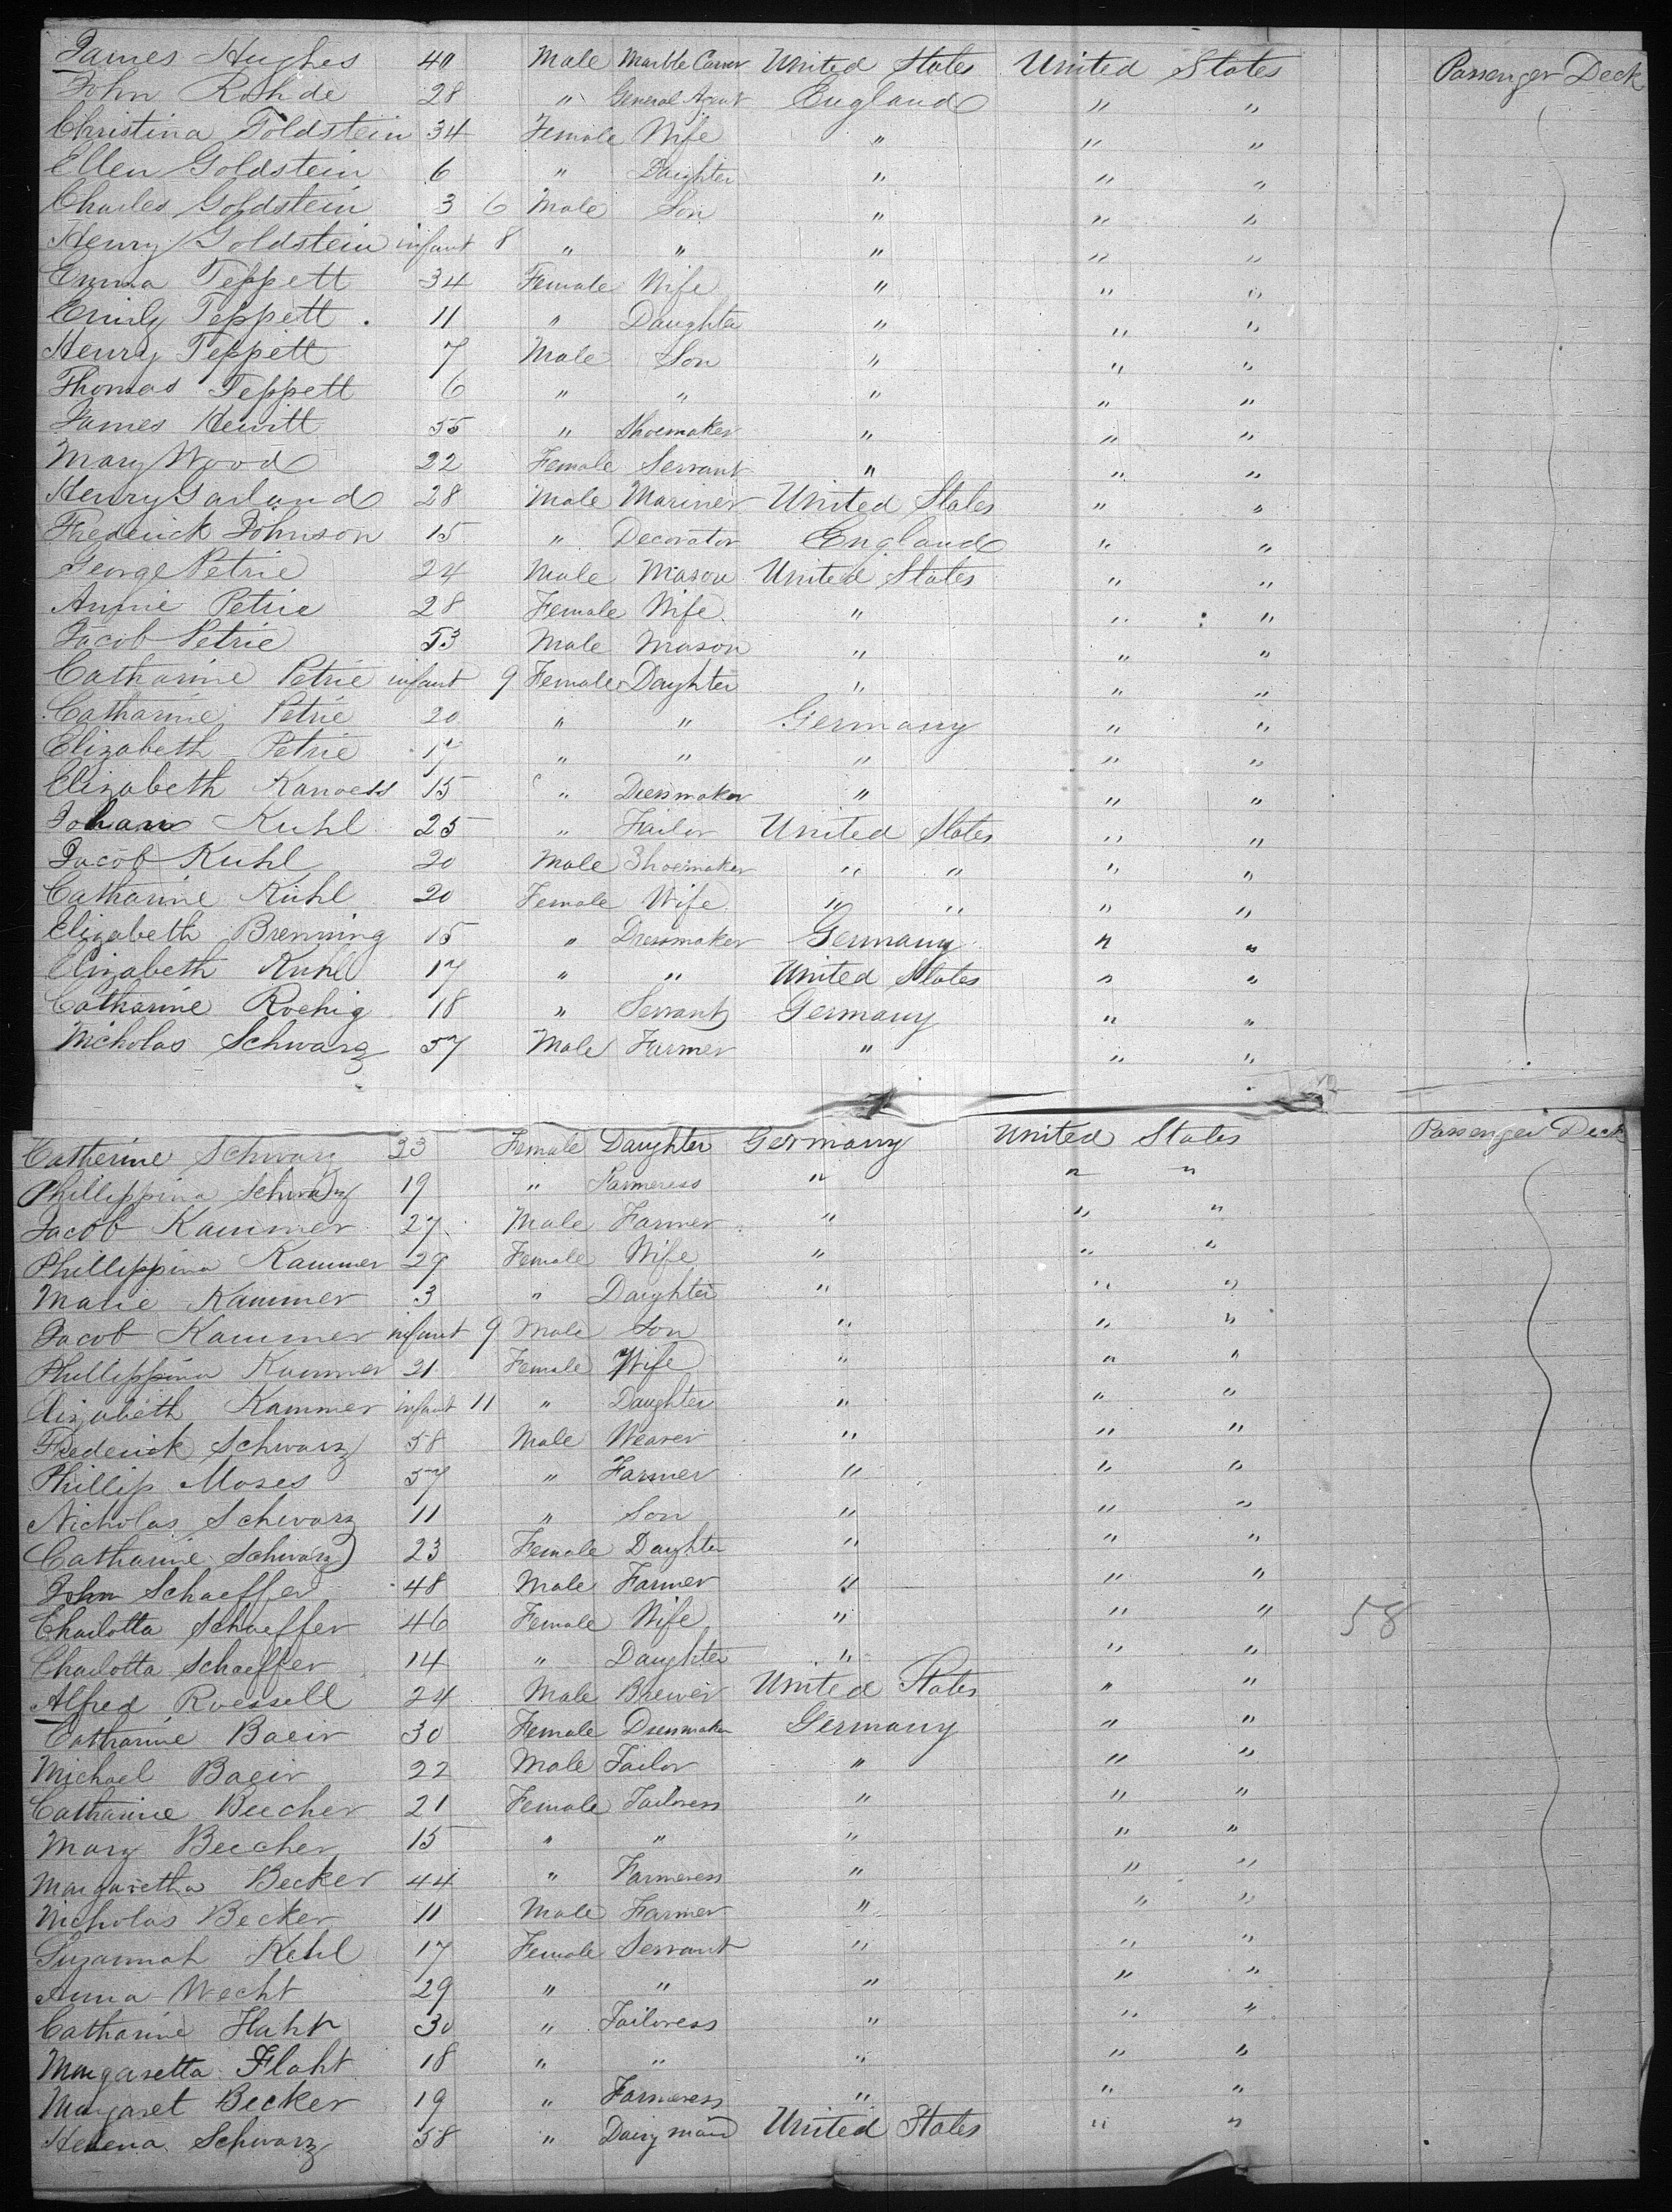 James Hughes 40 Male Marble Carver United States United States Passenger Deck
John Rohde 28 " General Agent England " "
Christina Goldstein 34 Female Wife " " "
Ellen Goldstein 6 " Daughter " " "
Charles Goldstein 3 6 Male Son " " "
Henry Goldstein infant 8 " " " " "
Emma Teppett 34 Female Wife " " "
Emily Teppett . 11 " Daughter " " "
Henry Teppett 7 Male Son " " "
Thomas Teppett 6 " " " " "
James Hewitt 55 " Shoemaker " " "
Mary Wood 22 Female Servant " " "
Henry Garland 28 Male Mariner United States " "
Frederick Johnson 15 " Decorator England " "
George Petrie 24 Male Mason United States " "
Annie Petrie 28 Female Wife " " "
Jacob Petrie 53 Male Mason " " "
Catharine Petrie infant 9 Female Daughter " " "
Catharine Petrie 20 " " Germany " "
Elizabeth Petrie 17 " " " " "
Elizabeth 15 " Dressmaker " " "
Johann Kuhl 25 " Tailor United States " "
Jacob Kuhl 20 Male Shoemaker " " " "
Catharine Kuhl 20 Female Wife " " " "
Elizabeth Brenning 15 " Dressmaker Germany " "
Elizabeth Kuhl 17 " " United States " "
Catharine Roehig 18 " Servant Germany " "
Nicholas Schwarz 57 Male Farmer " " "
Catherine Schwarz 23 Female Daughter Germany United States Passenger Deck
Phillippina Schwarz 19 " Farmeress " " "
Jacob Kammer 27 Male Farmer " " "
Phillippina Kammer 29 Female Wife " " "
Marie Kammer 3 " Daughter " " "
Jacob Kammer infant 9 Male Son " " "
Phillippina Kammer 21 Female Wife " " "
Elizabeth Kammer infant 11 " Daughter " " "
Frederick Schwarz 58 Male Weaver " " "
Phillip Moses 57 " Farmer " " "
Nicholas Schwarz 11 " Son " " "
Catharine Schwarz 23 Female Daughter " " "
John Schaeffer 48 Male Farmer " " "
Charlotta Schaeffer 46 Female Wife " " " 58
Charlotta Schaeffer 14 " Daughter " " "
Alfred Roessell 24 Male Brewer United States " "
Catharine Baeir 30 Female Dressmaker Germany " "
Michael Baeir 22 Male Tailor " " "
Catharine Beecher 21 Female Tailoress " " "
Mary Beecher 15 " " " " "
Margaretha Becker 44 " Farmeress " " "
Nicholas Becker 11 Male Farmer " " "
Suzannah Kehl 17 Female Servant " " "
Anna Wecht 29 " " " " "
Catharine Flaht 30 " Tailoress " " "
Margaretta Flaht 18 " " " " "
Margaret Becker 19 " Farmeress " " "
Helena Schwarz 58 " Dairy maid United States " "